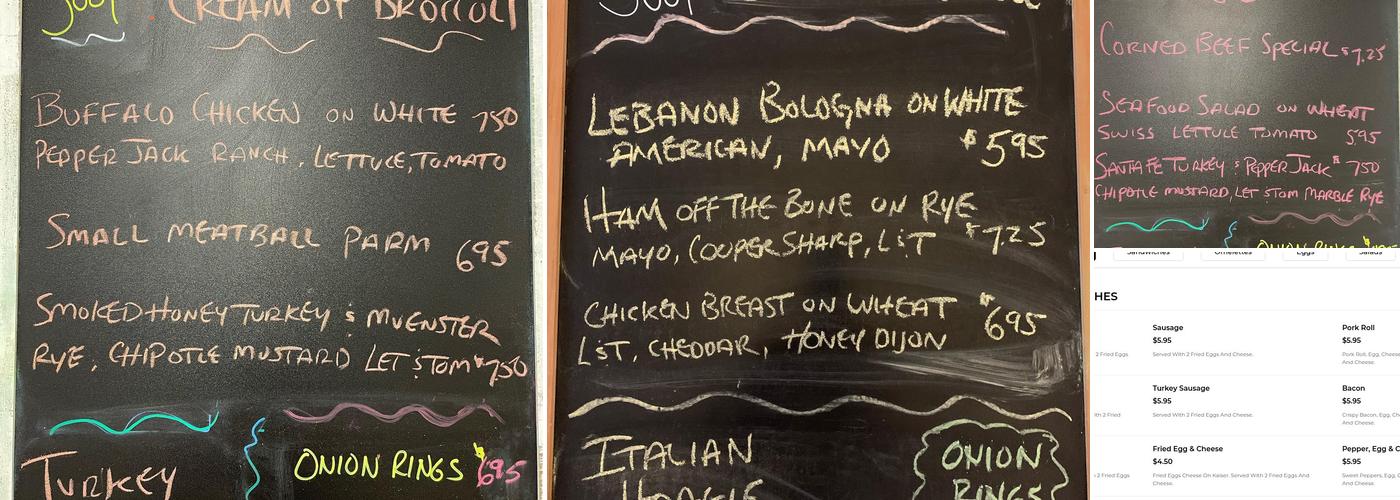 Soup CREAM OF BROCCOLI
BUFFALO CHICKEN ON WHITE 750
PEPPER JACK RANCH, LETTUCE, TOMATO
SMALL MEATBALL PARM 695
SMOKED HONEY TURKEY & MUENSTER
RYE, CHIPOTLE MUSTARD LET & TOM $750
TURKEY
ONION RINGS $695
Soup
LEBANON BOLOGNA ON WHITE
AMERICAN, MAYO $595
HAM OFF THE BONE ON RYE
MAYO, COOPER SHARP, L&T $7.25
CHICKEN BREAST ON WHEAT $695
L&T, CHEDDAR, HONEY DIJON
ITALIAN
HOAGIE
ONION
RINGS
CORNED BEEF SPECIAL $7.25
SEAFOOD SALAD ON WHEAT
SWISS LETTUCE TOMATO 595
SANTA FE TURKEY & PEPPER JACK $750
CHIPOTLE MUSTARD, LET & TOM MARBLE RYE
ONION RINGS
Sandwiches Omelettes Eggs Salads
HES
Sausage
$5.95
Served With 2 Fried Eggs And Cheese.
Pork Roll
$5.95
Pork Roll, Egg, Cheese
And Cheese.
2 Fried Eggs
Turkey Sausage
$5.95
Served With 2 Fried Eggs And Cheese.
Bacon
$5.95
Crispy Bacon, Egg, C
And Cheese.
ith 2 Fried
Fried Egg & Cheese
$4.50
Fried Eggs Cheese On Kaiser. Served With 2 Fried Eggs And
Cheese.
Pepper, Egg & C
$5.95
Sweet Peppers, Egg, C
And Cheese.
2 Fried Eggs